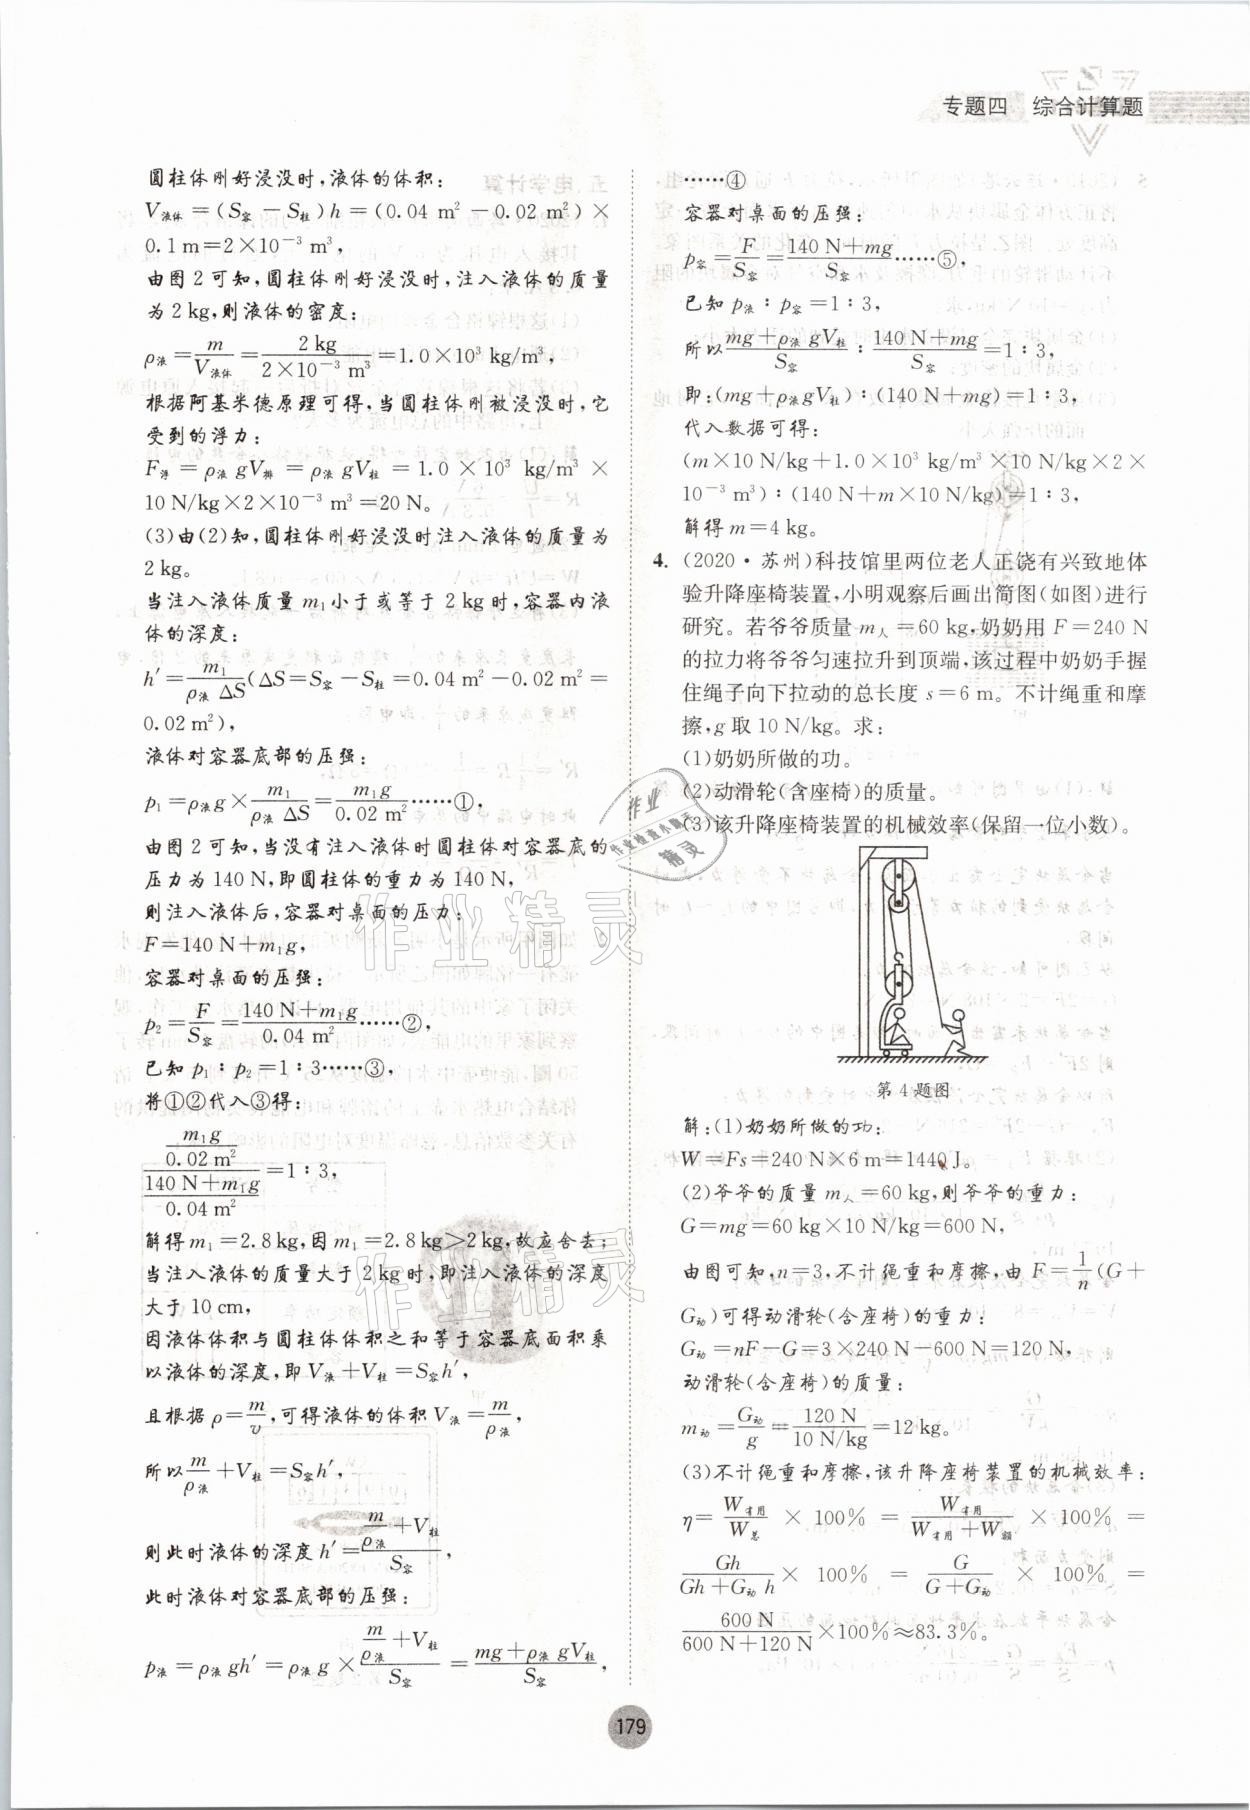 专题四 综合计算题
圆柱体刚好浸没时,液体的体积:
V液体=(S容-S柱)h=(0.04 m²-0.02 m²)×
0.1 m=2×10⁻³ m³,
由图2可知,圆柱体刚好浸没时,注入液体的质量
为2 kg,则液体的密度:
ρ液=m/V液体=2 kg/(2×10⁻³ m³)=1.0×10³ kg/m³,
根据阿基米德原理可得,当圆柱体刚被浸没时,它
受到的浮力:
F浮=ρ液gV排=ρ液gV柱=1.0×10³ kg/m³×
10 N/kg×2×10⁻³ m³=20 N。
(3)由(2)知,圆柱体刚好浸没时注入液体的质量为
2 kg。
当注入液体质量m₁小于或等于2 kg时,容器内液
体的深度:
h′=m₁/(ρ液ΔS)(ΔS=S容-S柱=0.04 m²-0.02 m²=
0.02 m²),
液体对容器底部的压强:
p₁=ρ液g×m₁/(ρ液ΔS)=m₁g/(0.02 m²)……①,
由图2可知,当没有注入液体时圆柱体对容器底的
压力为140 N,即圆柱体的重力为140 N,
则注入液体后,容器对桌面的压力:
F=140 N+m₁g,
容器对桌面的压强:
p₂=F/S容=(140 N+m₁g)/(0.04 m²)……②,
已知p₁∶p₂=1∶3……③,
将①②代入③得:
(m₁g/(0.02 m²))/((140 N+m₁g)/(0.04 m²))=1∶3,
解得m₁=2.8 kg,因m₁=2.8 kg>2 kg,故应舍去;
当注入液体的质量大于2 kg时,即注入液体的深度
大于10 cm,
因液体体积与圆柱体体积之和等于容器底面积乘
以液体的深度,即V液+V柱=S容h′,
且根据ρ=m/v,可得液体的体积V液=m/ρ液,
所以m/ρ液+V柱=S容h′,
则此时液体的深度h′=(m/ρ液+V柱)/S容,
此时液体对容器底部的压强:
p液=ρ液gh′=ρ液g×(m/ρ液+V柱)/S容=(mg+ρ液gV柱)/S容,
……④
容器对桌面的压强:
p容=F/S容=(140 N+mg)/S容……⑤,
已知p液∶p容=1∶3,
所以(mg+ρ液gV柱)/S容∶(140 N+mg)/S容=1∶3,
即:(mg+ρ液gV柱)∶(140 N+mg)=1∶3,
代入数据可得:
(m×10 N/kg+1.0×10³ kg/m³×10 N/kg×2×
10⁻³ m³)∶(140 N+m×10 N/kg)=1∶3,
解得m=4 kg。
4. (2020·苏州)科技馆里两位老人正饶有兴致地体
验升降座椅装置,小明观察后画出简图(如图)进行
研究。若爷爷质量m人=60 kg,奶奶用F=240 N
的拉力将爷爷匀速拉升到顶端,该过程中奶奶手握
住绳子向下拉动的总长度s=6 m。不计绳重和摩
擦,g取10 N/kg。求:
(1)奶奶所做的功。
(2)动滑轮(含座椅)的质量。
(3)该升降座椅装置的机械效率(保留一位小数)。
第4题图
解:(1)奶奶所做的功:
W=Fs=240 N×6 m=1440 J。
(2)爷爷的质量m人=60 kg,则爷爷的重力:
G=mg=60 kg×10 N/kg=600 N,
由图可知,n=3,不计绳重和摩擦,由F=1/n(G+
G动)可得动滑轮(含座椅)的重力:
G动=nF-G=3×240 N-600 N=120 N,
动滑轮(含座椅)的质量:
m动=G动/g=120 N/(10 N/kg)=12 kg。
(3)不计绳重和摩擦,该升降座椅装置的机械效率:
η=W有用/W总×100%=W有用/(W有用+W额)×100%=
Gh/(Gh+G动h)×100%=G/(G+G动)×100%=
600 N/(600 N+120 N)×100%≈83.3%。
作业精灵
作业精灵
作业
作业检查小助手
精灵
179